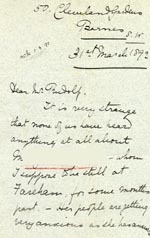 50 Cleveland Gardens
Barnes
S.W.
31st March 1892
Dear Mr Rudolf,
It is very strange
that none of us have heard
anything at all about
M - whom
I suppose is still at
Fareham, for some months
past. - Her people are getting
very anxious as she has